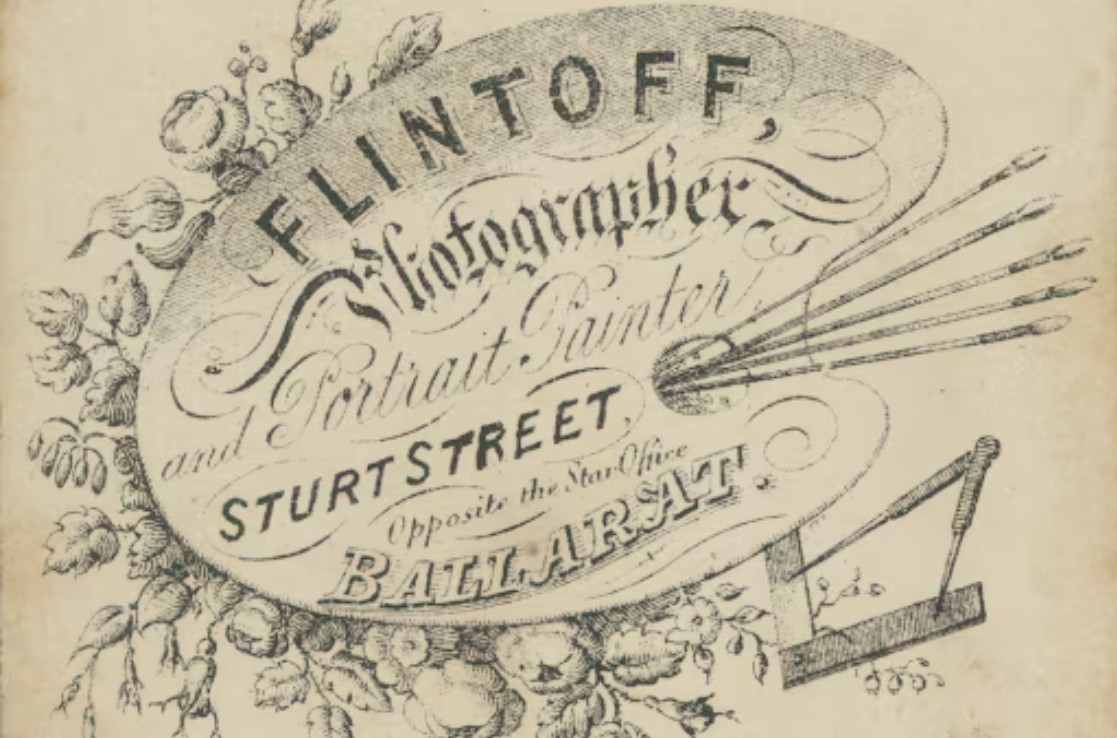 FLINTOFF,
Photographer
and Portrait Painter,
STURT STREET,
Opposite the Star Office
BALLARAT.